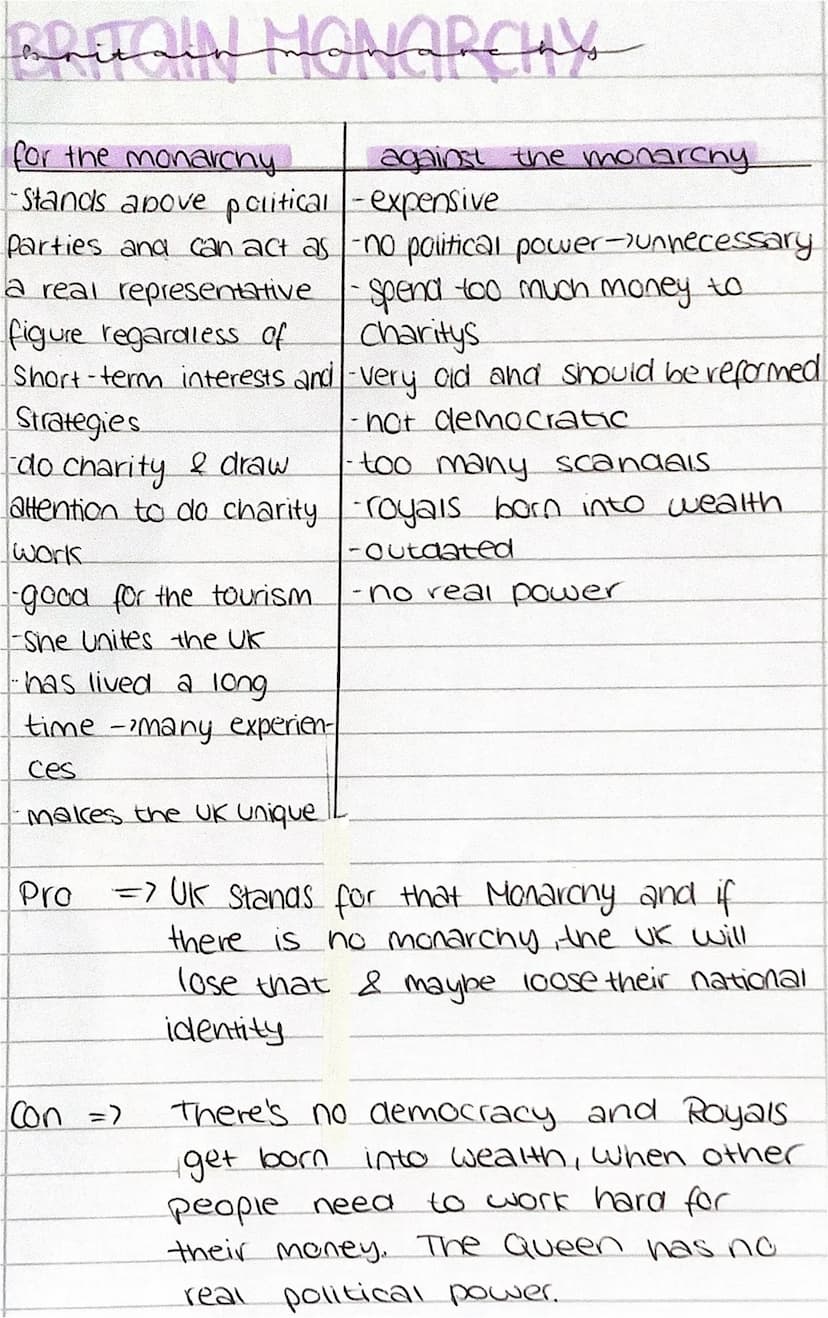 BRITAIN MONARCHY
britain monarchy
for the monarchy
-Stands above political
parties and can act as
a real representative
figure regardless of
short-term interests and
strategies
-do charity & draw
attention to do charity
work
-good for the tourism
-she unites the UK
-has lived a long
time ->many experien-
ces
-makes the UK unique
against the monarchy
-expensive
-no political power->unnecessary
-spend too much money to
charitys
-very old and should be reformed
-not democratic
-too many scandals
-royals born into wealth
-outdated
-no real power
Pro => UK stands for that Monarchy and if
there is no monarchy, the UK will
lose that & maybe loose their national
identity
Con => There's no democracy and Royals
get born into wealth, when other
people need to work hard for
their money. The Queen has no
real political power.